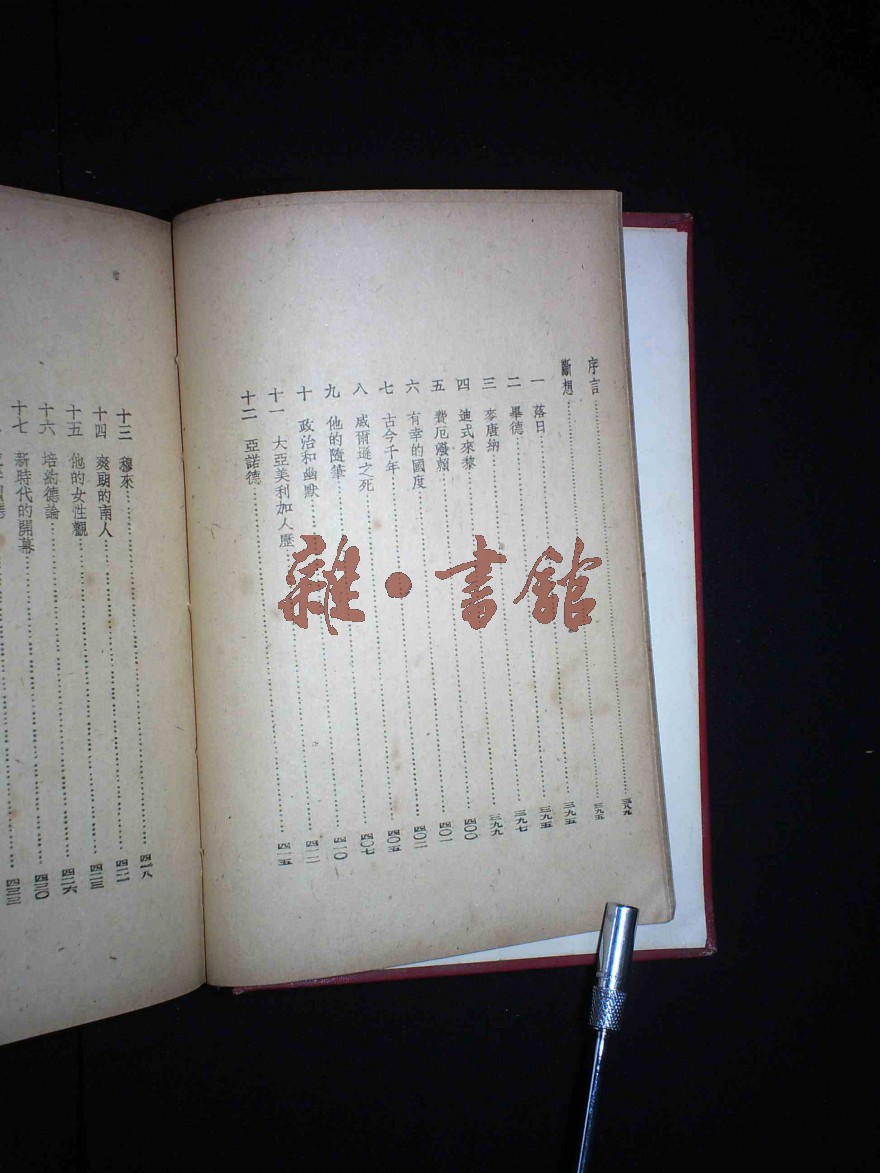 序言…………三八九
斷想…………三九五
一　落日…………三九五
二　畢德…………三九七
三　麥唐納…………三九九
四　迪式來黎…………四〇〇
五　費厄潑賴…………四〇一
六　有幸的國度…………四〇二
七　古今千年…………四〇五
八　威爾遜之死…………四〇七
九　他的隨筆…………四一〇
十　政治和幽默…………四一二
十一　大亞美利加人歷
十二　亞諾德…………四一五
十三　穆來…………四一八
十四　爽朗的南人…………四二二
十五　他的女性觀…………四二三
十六　培約德論…………四二六
十七　新時代的開幕…………四三〇
四三三
雜·書館